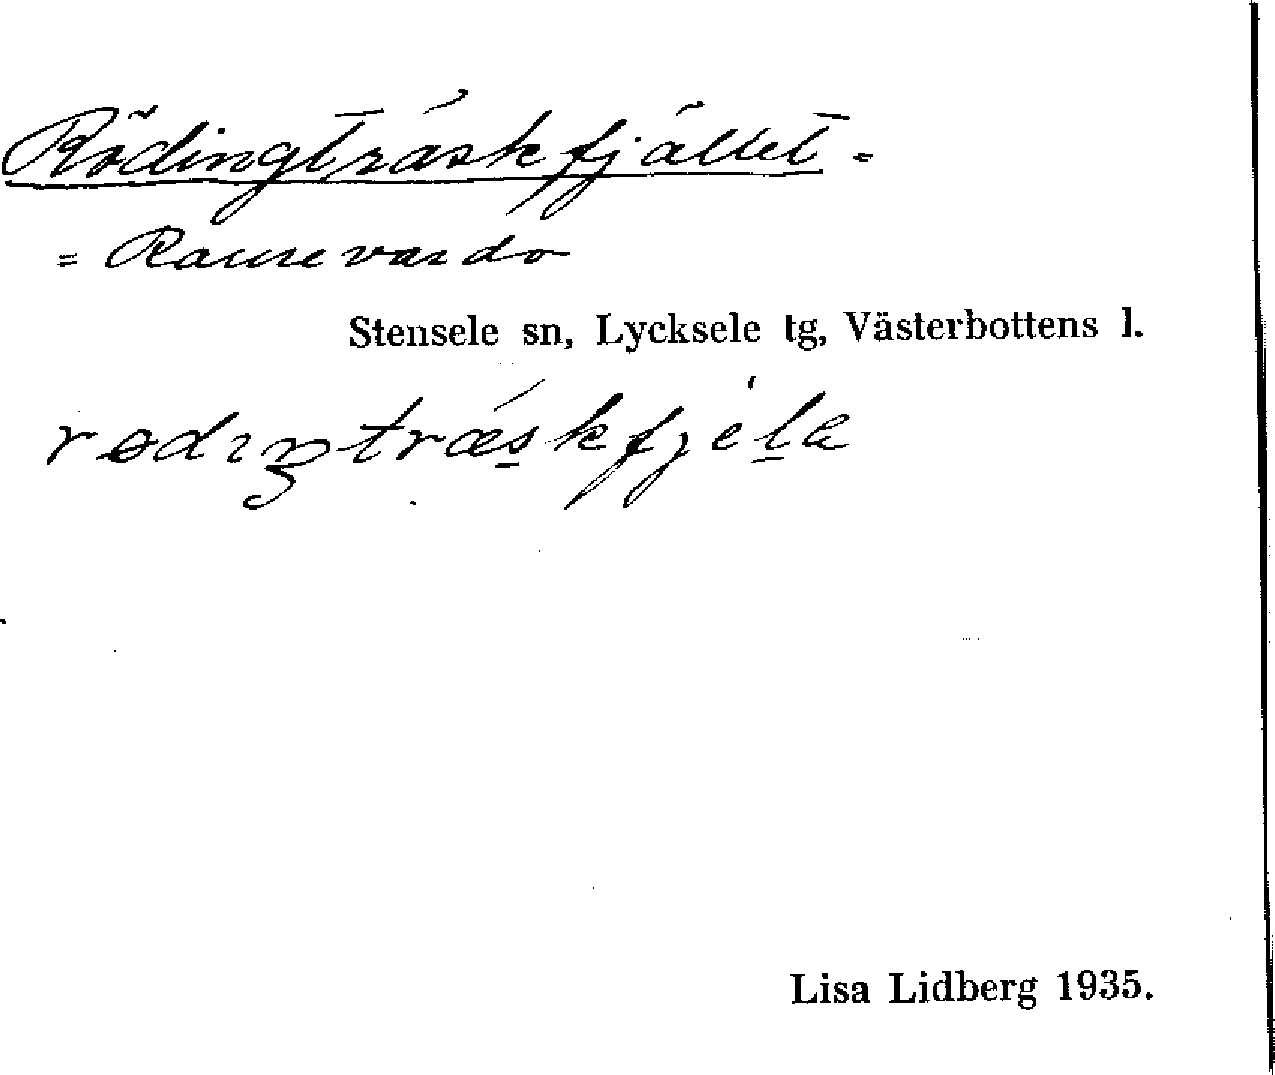 Rödingträskfjället =
= Rausevardo
Stensele sn, Lycksele tg, Västerbottens l.
rødıŋtræskfjéla
Lisa Lidberg 1935.